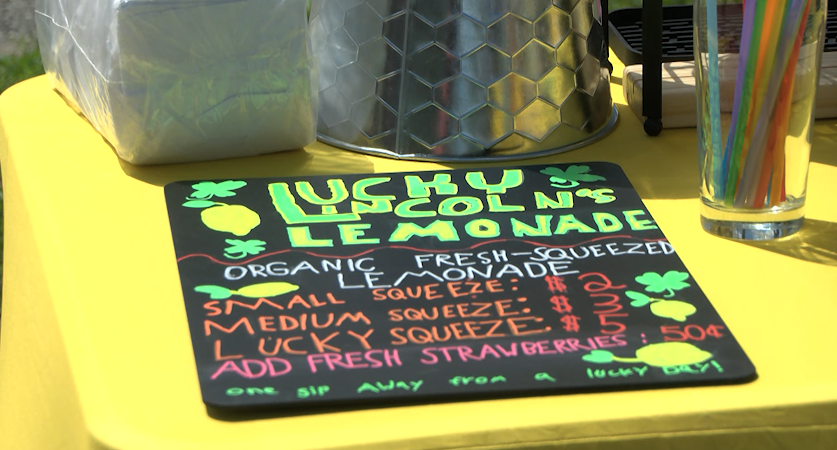 LUCKY
LINCOLN'S
LEMONADE
ORGANIC FRESH-SQUEEZED
LEMONADE
SMALL SQUEEZE: $2
MEDIUM SQUEEZE: $3
LUCKY SQUEEZE: $5
ADD FRESH STRAWBERRIES: 50¢
one sip away from a lucky day!